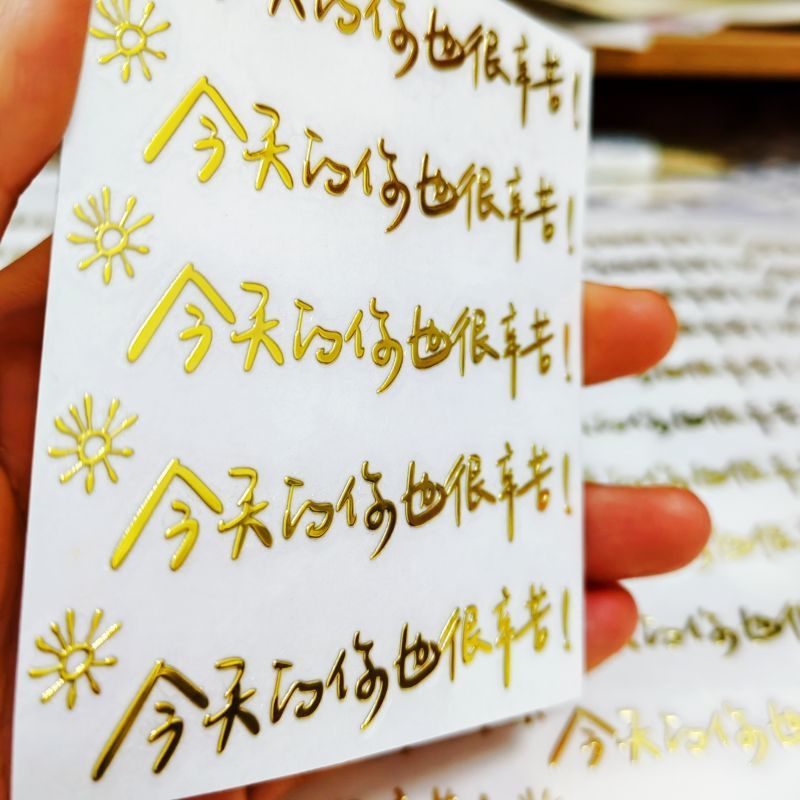 今天的你也很辛苦！
今天的你也很辛苦！
今天的你也很辛苦！
今天的你也很辛苦！
今天的你也很辛苦！
今天的你也